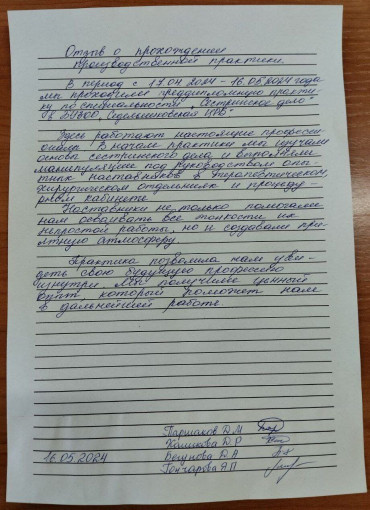 Отзыв о прохождении
производственной практики.
В период с 17.04 2024 - 16.05.2024 года
мы проходили преддипломную практи-
ку по специальности "Сестринское дело"
в БУЗОО "Седельниковская ЦРБ"
Здесь работают настоящие професси-
оналы. В начале практики мы изучали
основы сестринского дела и выполняли
манипуляции под руководством опыт-
ных наставников в терапевтическом,
хирургическом отделениях и процеду-
рном кабинете.
Наставники не только помогали
нам осваивать все тонкости их
непростой работы, но и создавали при-
ятную атмосферу.
Практика позволила нам уви-
деть свою будущую профессию
изнутри. Мы получили ценный
опыт, который поможет нам
в дальнейшей работе.
Паршаков Д.М
Д.Р
16.05.2024 Бегунова Д.А
Гончарова Я.П